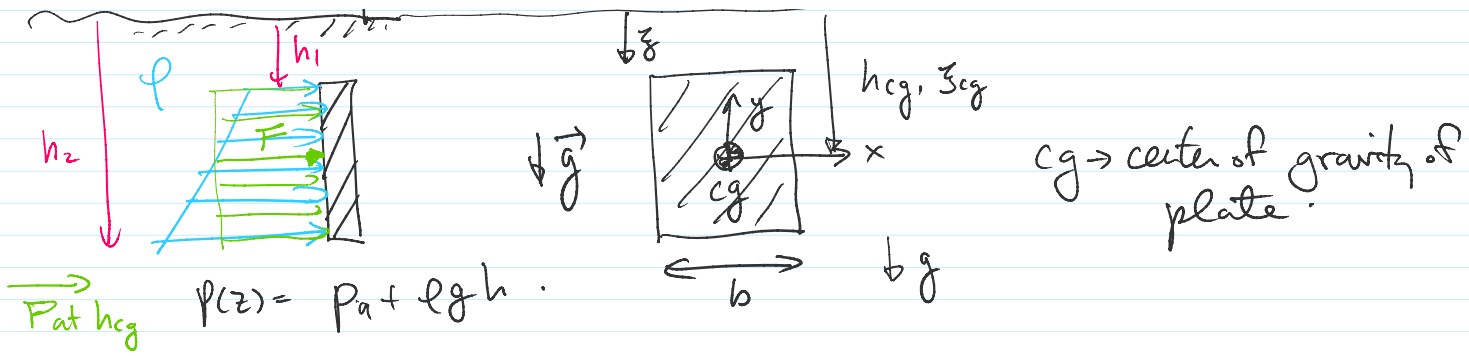 h1
ξ
ρ
h2
F
g
y
x
cg
hcg, ξcg
cg → center of gravity of
plate.
b
g
P at hcg
p(z) = pa + ρgh.